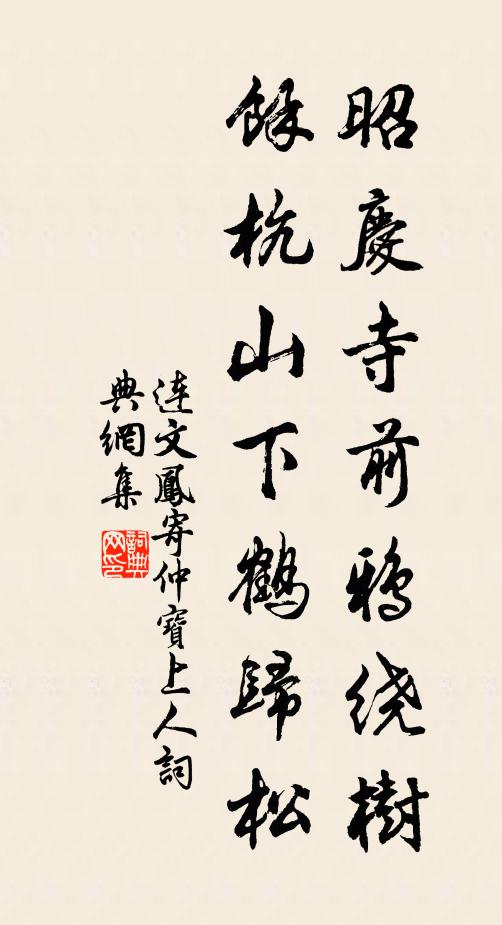 昭慶寺前鴉绕樹
餘杭山下鶴歸松
連文鳳寄仲寶上人詞
典網集
詞典网印